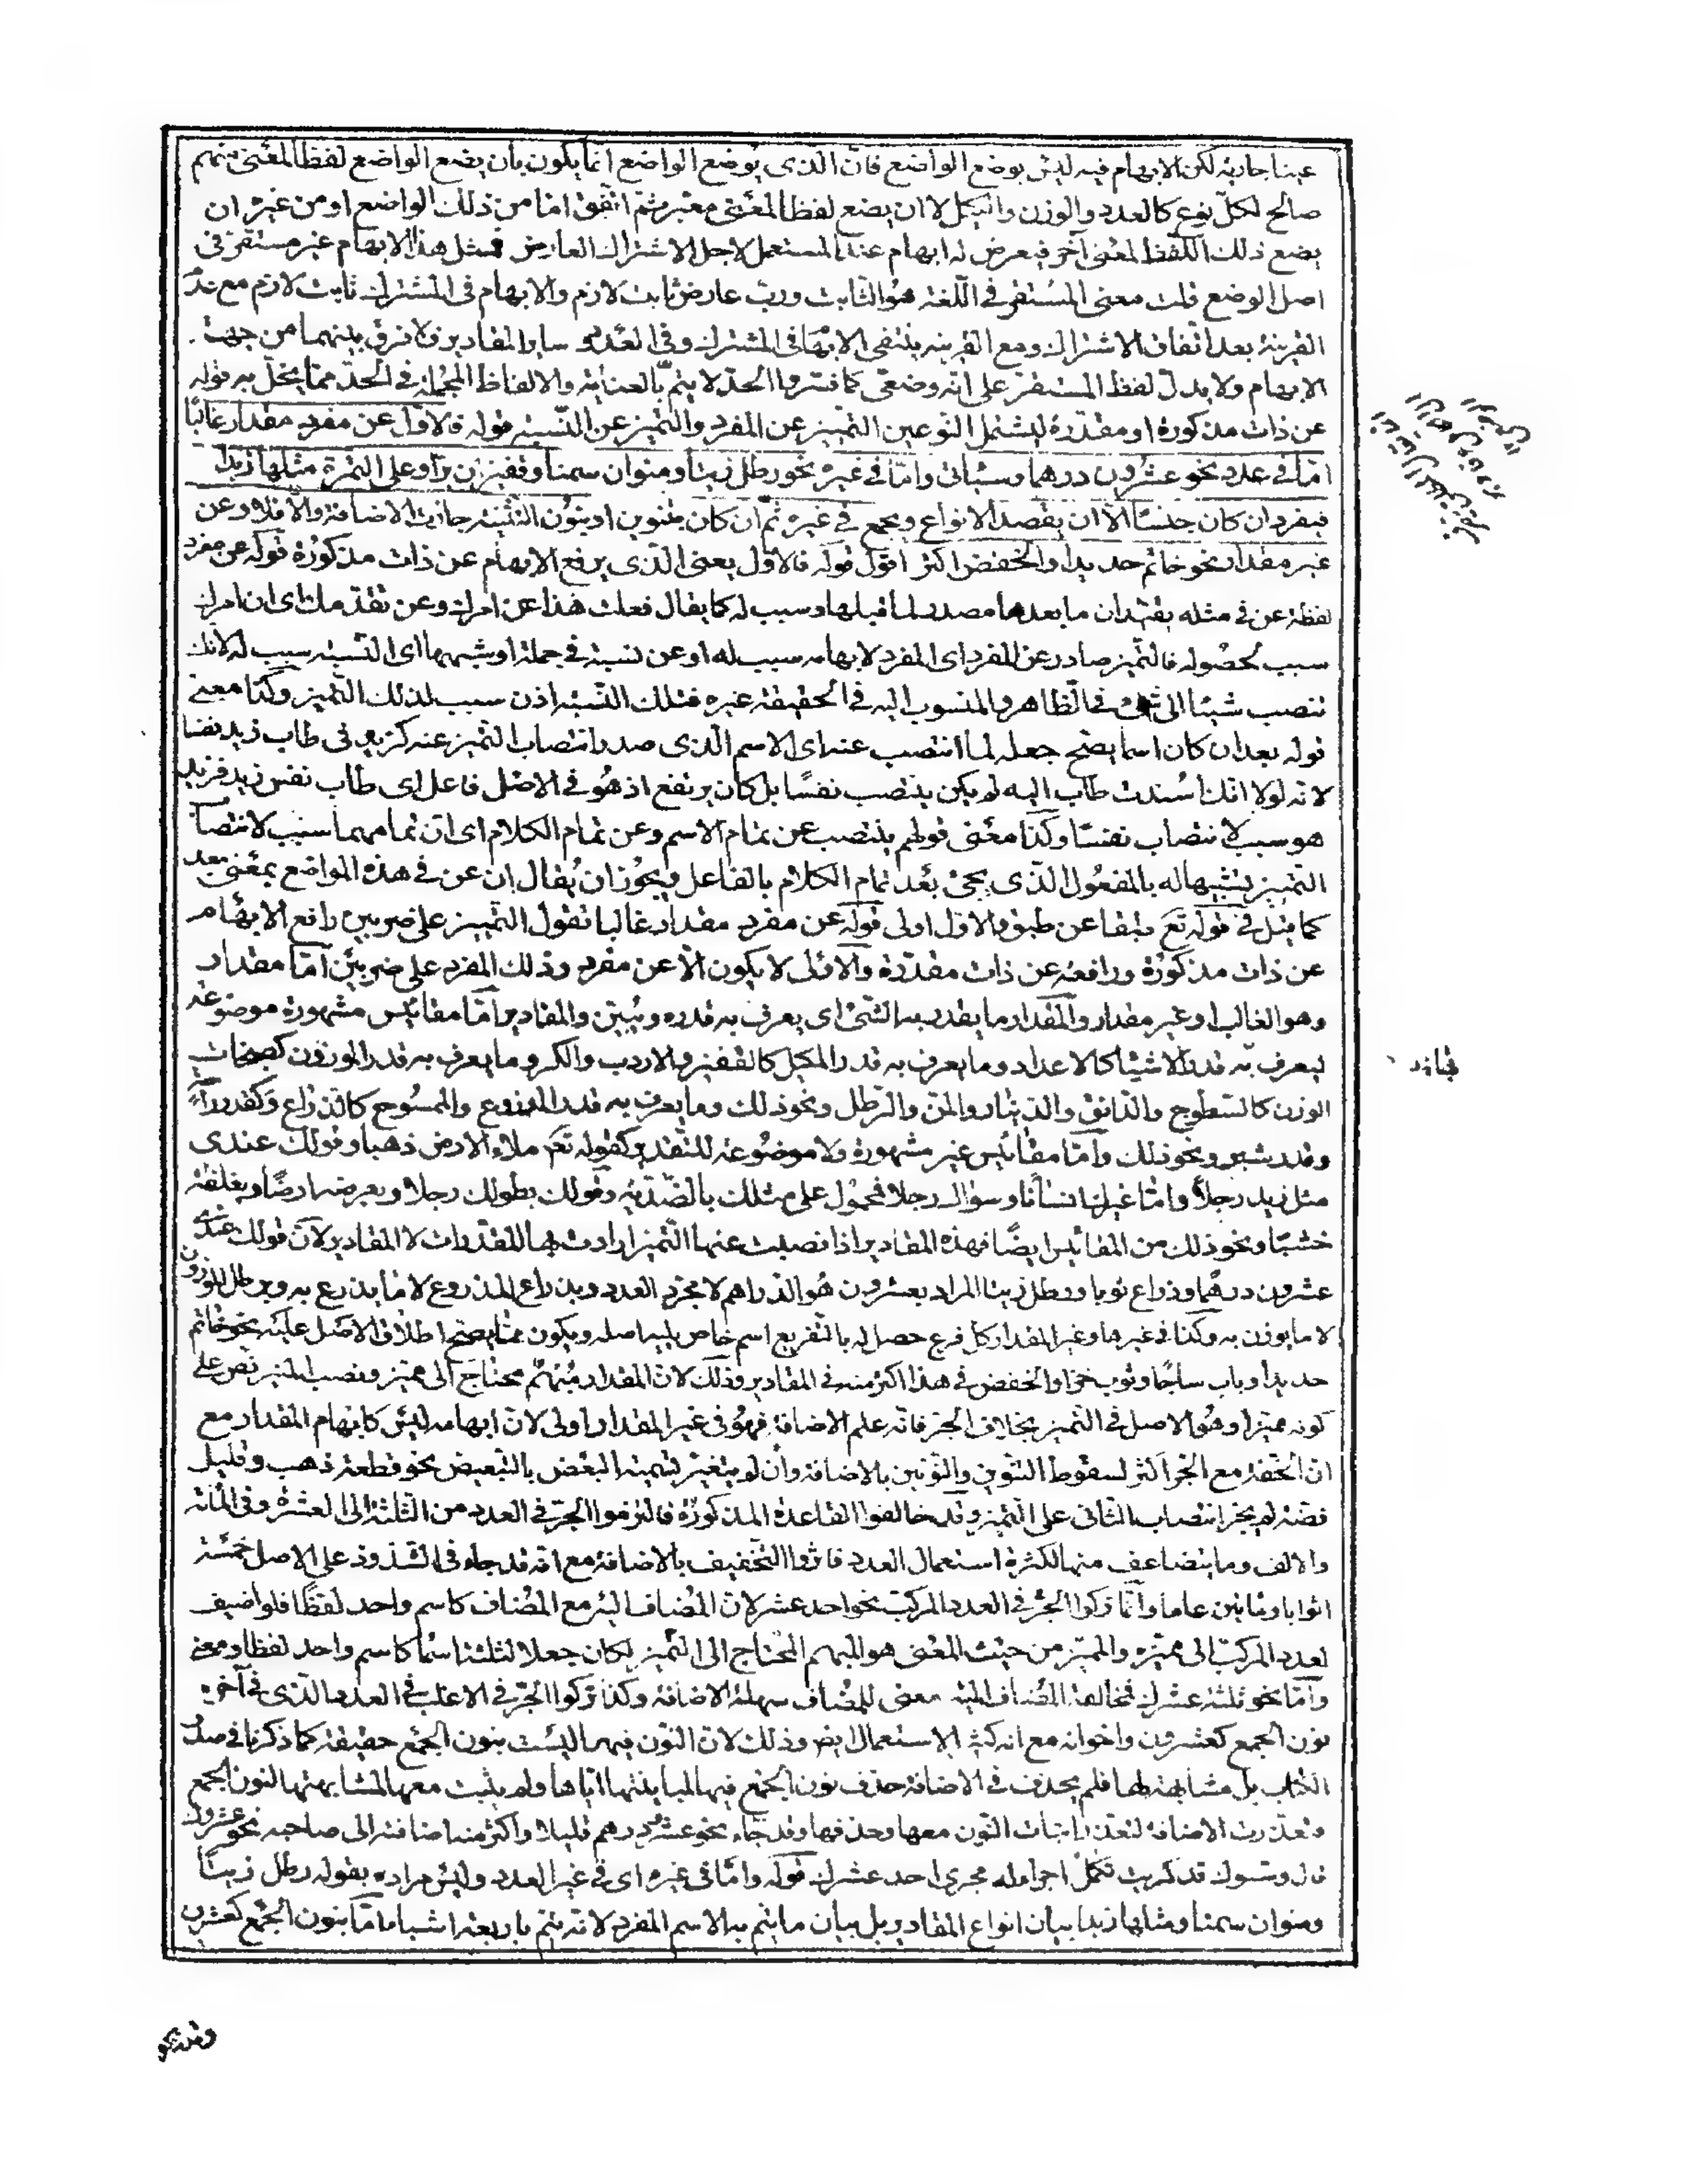 عينا جارية لكن الابهام فيه ليس بوضع الواضع فان الذى بوضع الواضع انما يكون بان يضع الواضع لفظا لمعنى مبهم
صالح لكل نوع كالعدد والوزن والكيل لا ان يضع لفظا لمعنى معتبر ثم اتفق اما من ذلك الواضع او من غيره ان
يضع ذلك اللفظ لمعنى آخر فيعرض له ابهام عند المستعمل لاجل الاشتراك العارض فمثل هذا الابهام غير مستقر فى
اصل الوضع قلت معنى المستقر فى اللغة هو الثابت ورب عارض ثابت لازم والابهام فى المشترك ثابت لازم مع عدم
القرينة بعد اتفاق الاشتراك ومع القرينة ينتفى الابهام فى المشترك وفى العدد وساير المقادير فلا فرق بينهما من جهت
الابهام ولا يدل لفظ المستقر على انه وضعى كما فسره والحد لا يتم بالعناية والالفاظ المجملة فى الحد مما يخل به قوله
عن ذات مذكورة او مقدرة ليشتمل النوعين التمييز عن المفرد والتميز عن النسبة قوله فالاول عن مفرد مقدار غالبا
اما فى عدد نحو عشرون درهما وسياتى واما فى غيره نحو رطل زيتا ومنوان سمنا وقفيزان برا وعلى التمرة مثلها زبدا
فيفرد ان كان جنسا الا ان يقصد الانواع ويجمع فى غيره ثم ان كان بتنوين او بنون التثنية جازت الاضافة والا فلا وعن
غير مقدار نحو خاتم حديدا والخفض اكثر اقول قوله فالاول يعنى الذى يرفع الابهام عن ذات مذكورة قوله عن مفرد
لفظة عن فى مثله يفيد ان ما بعدها مصدر لما قبلها وسبب له كما يقال فعلت هذا عن امرك وعن تقدمك اى ان امرك
سبب لحصوله فالتميز صادر عن المفرد اى المفرد لابهامه سبب له او عن نسبة فى جملة او شبهها اى النسبة سبب له لانك
تنصب شيئا الى شئ فى الظاهر والمنسوب اليه فى الحقيقة غيره فتلك النسبة اذن سبب لذلك التميز وكذا معنى
قوله بعد ان كان اسما يصح جعله لما انتصب عنه اى الاسم الذى صدر انتصاب التميز عنه كزيد فى طاب زيد نفسا
لانه لولا انك اسندت طاب اليه لم يكن ينتصب نفسا بل كان يرتفع اذ هو فى الاصل فاعل اى طاب نفس زيد فزيد
هو سبب لانتصاب نفسا وكذا معنى قولهم ينتصب عن تمام الاسم وعن تمام الكلام اى ان تمامهما سبب لانتصاب
التميز تشبيها له بالمفعول الذى يجئ بعد تمام الكلام بالفاعل ويجوز ان يقال ان عن فى هذه المواضع بمعنى بعد
كما قيل فى قوله تع طبقا عن طبق والاول اولى قوله عن مفرد مقدار غالبا تقول التمييز على ضربين رافع الابهام
عن ذات مذكورة ورافعه عن ذات مقدرة والاول لا يكون الا عن مفرد وذلك المفرد على ضربين اما مقدار
وهو الغالب او غير مقدار والمقدار ما يقدر به الشئ اى يعرف به قدره ويبين والمقادير اما مقائيس مشهورة موضوعة
ليعرف به قدر الاشيا كالاعداد وما يعرف به قدر المكيل كالقفيز والاردب والكر وما يعرف به قدر الموزون كصنجات
الوزن كالتسطوج والدانق والدينار والمن والرطل ونحو ذلك وما يعرف به قدر المذروع والممسوح كالذراع وكقدر راحة
وقدر شبر ونحو ذلك واما مقائيس غير مشهورة ولا موضوعة للتقدير كقوله تع ملاء الارض ذهبا وقولك عندى
مثل زيد رجلا واما غيرك انسانا وسواك رجلا فمحمول على مثلك بالضدية وقولك بطولك رجلا وبعرضه ارضا وبغلظه
خشبا ونحو ذلك من المقائيس ايضا فهذه المقادير اذا نصبت عنها التميز اردت بها المقدرات لا المقادير لان قولك عندى
عشرون درهما وذراع ثوبا ورطل زيتا المراد بعشرون هو الدراهم لا مجرد العدد وبذراع المذروع لا ما يذرع به وبرطل الموزون
لا ما يوزن به وكذا فى غيرها وغير المقدار كل فرع حصل له بالتفريع اسم خاص يليه اصله ويكون مما يصح اطلاق الاصل عليه نحو خاتم
حديدا وباب ساجا وثوب خزا والخفض فى هذا اكثر منه فى المقادير وذلك لان المقدار مبهم محتاج الى مميز ونصب المميز نص على
كونه مميزا وهو الاصل فى التميز بخلاف الجر فانه علم الاضافة فهو فى غير المقدار اولى لان ابهامه ليس كابهام المقدار مع
ان الخفة مع الجر اكثر لسقوط التنوين والنونين بالاضافة وان لم يتغير تسمية البعض بالتبعيض نحو قطعة ذهب وقليل
فضة لم يجز انتصاب الثانى على التميز وقد خالفوا القاعدة المذكورة فالتزموا الجر فى العدد من الثلثة الى العشرة وفى المائة
والالف وما يتضاعف منها لكثرة استعمال العدد فآثروا التخفيف بالاضافة مع انه قد جاء فى الشذوذ على الاصل خمسة
اثوابا ومائتين عاما وانما تركوا الجر فى العدد المركب نحو احد عشر لان المضاف اليه مع المضاف كاسم واحد لفظا فلو اضيف
لعدد المركب الى مميزه والمميز من حيث المعنى هو المبهم المحتاج الى التميز لكان جعلا لثلثة اسما كاسم واحد لفظا ومعنى
واما نحو ثلثة عشرك فمخالفة المضاف اليه معنى للمضاف سهلة الاضافة وكذا تركوا الجر فى الاغلب فى العدد الذى فى آخره
نون الجمع كعشرون واخوانه مع انه كثير الاستعمال ايض وذلك لان النون فيها ليست بنون الجمع حقيقة كما ذكرنا فى صدر
الكتاب بل مشابهة لها فلم يحذف فى الاضافة حذف نون الجمع فيها لمباينتها اياها ولم يثبت معها لمشابهتها لنون الجمع
وتعذرت الاضافة لتعذر اثبات النون معها وحذفها وقد جاء نحو عشرو درهم قليلا واكثر منه اضافته الى صاحبه نحو عشروك
قال وستوك قد كربت تكمل اجرا له مجرى احد عشرك قوله واما فى غيره اى فى غير العدد وليس مراده بقوله رطل زيتا
ومنوان سمنا ومثلها زبدا بيان انواع المقادير بل بيان ما يتم به الاسم المفرد لانه يتم باربعة اشياء اما بنون الجمع كعشرين